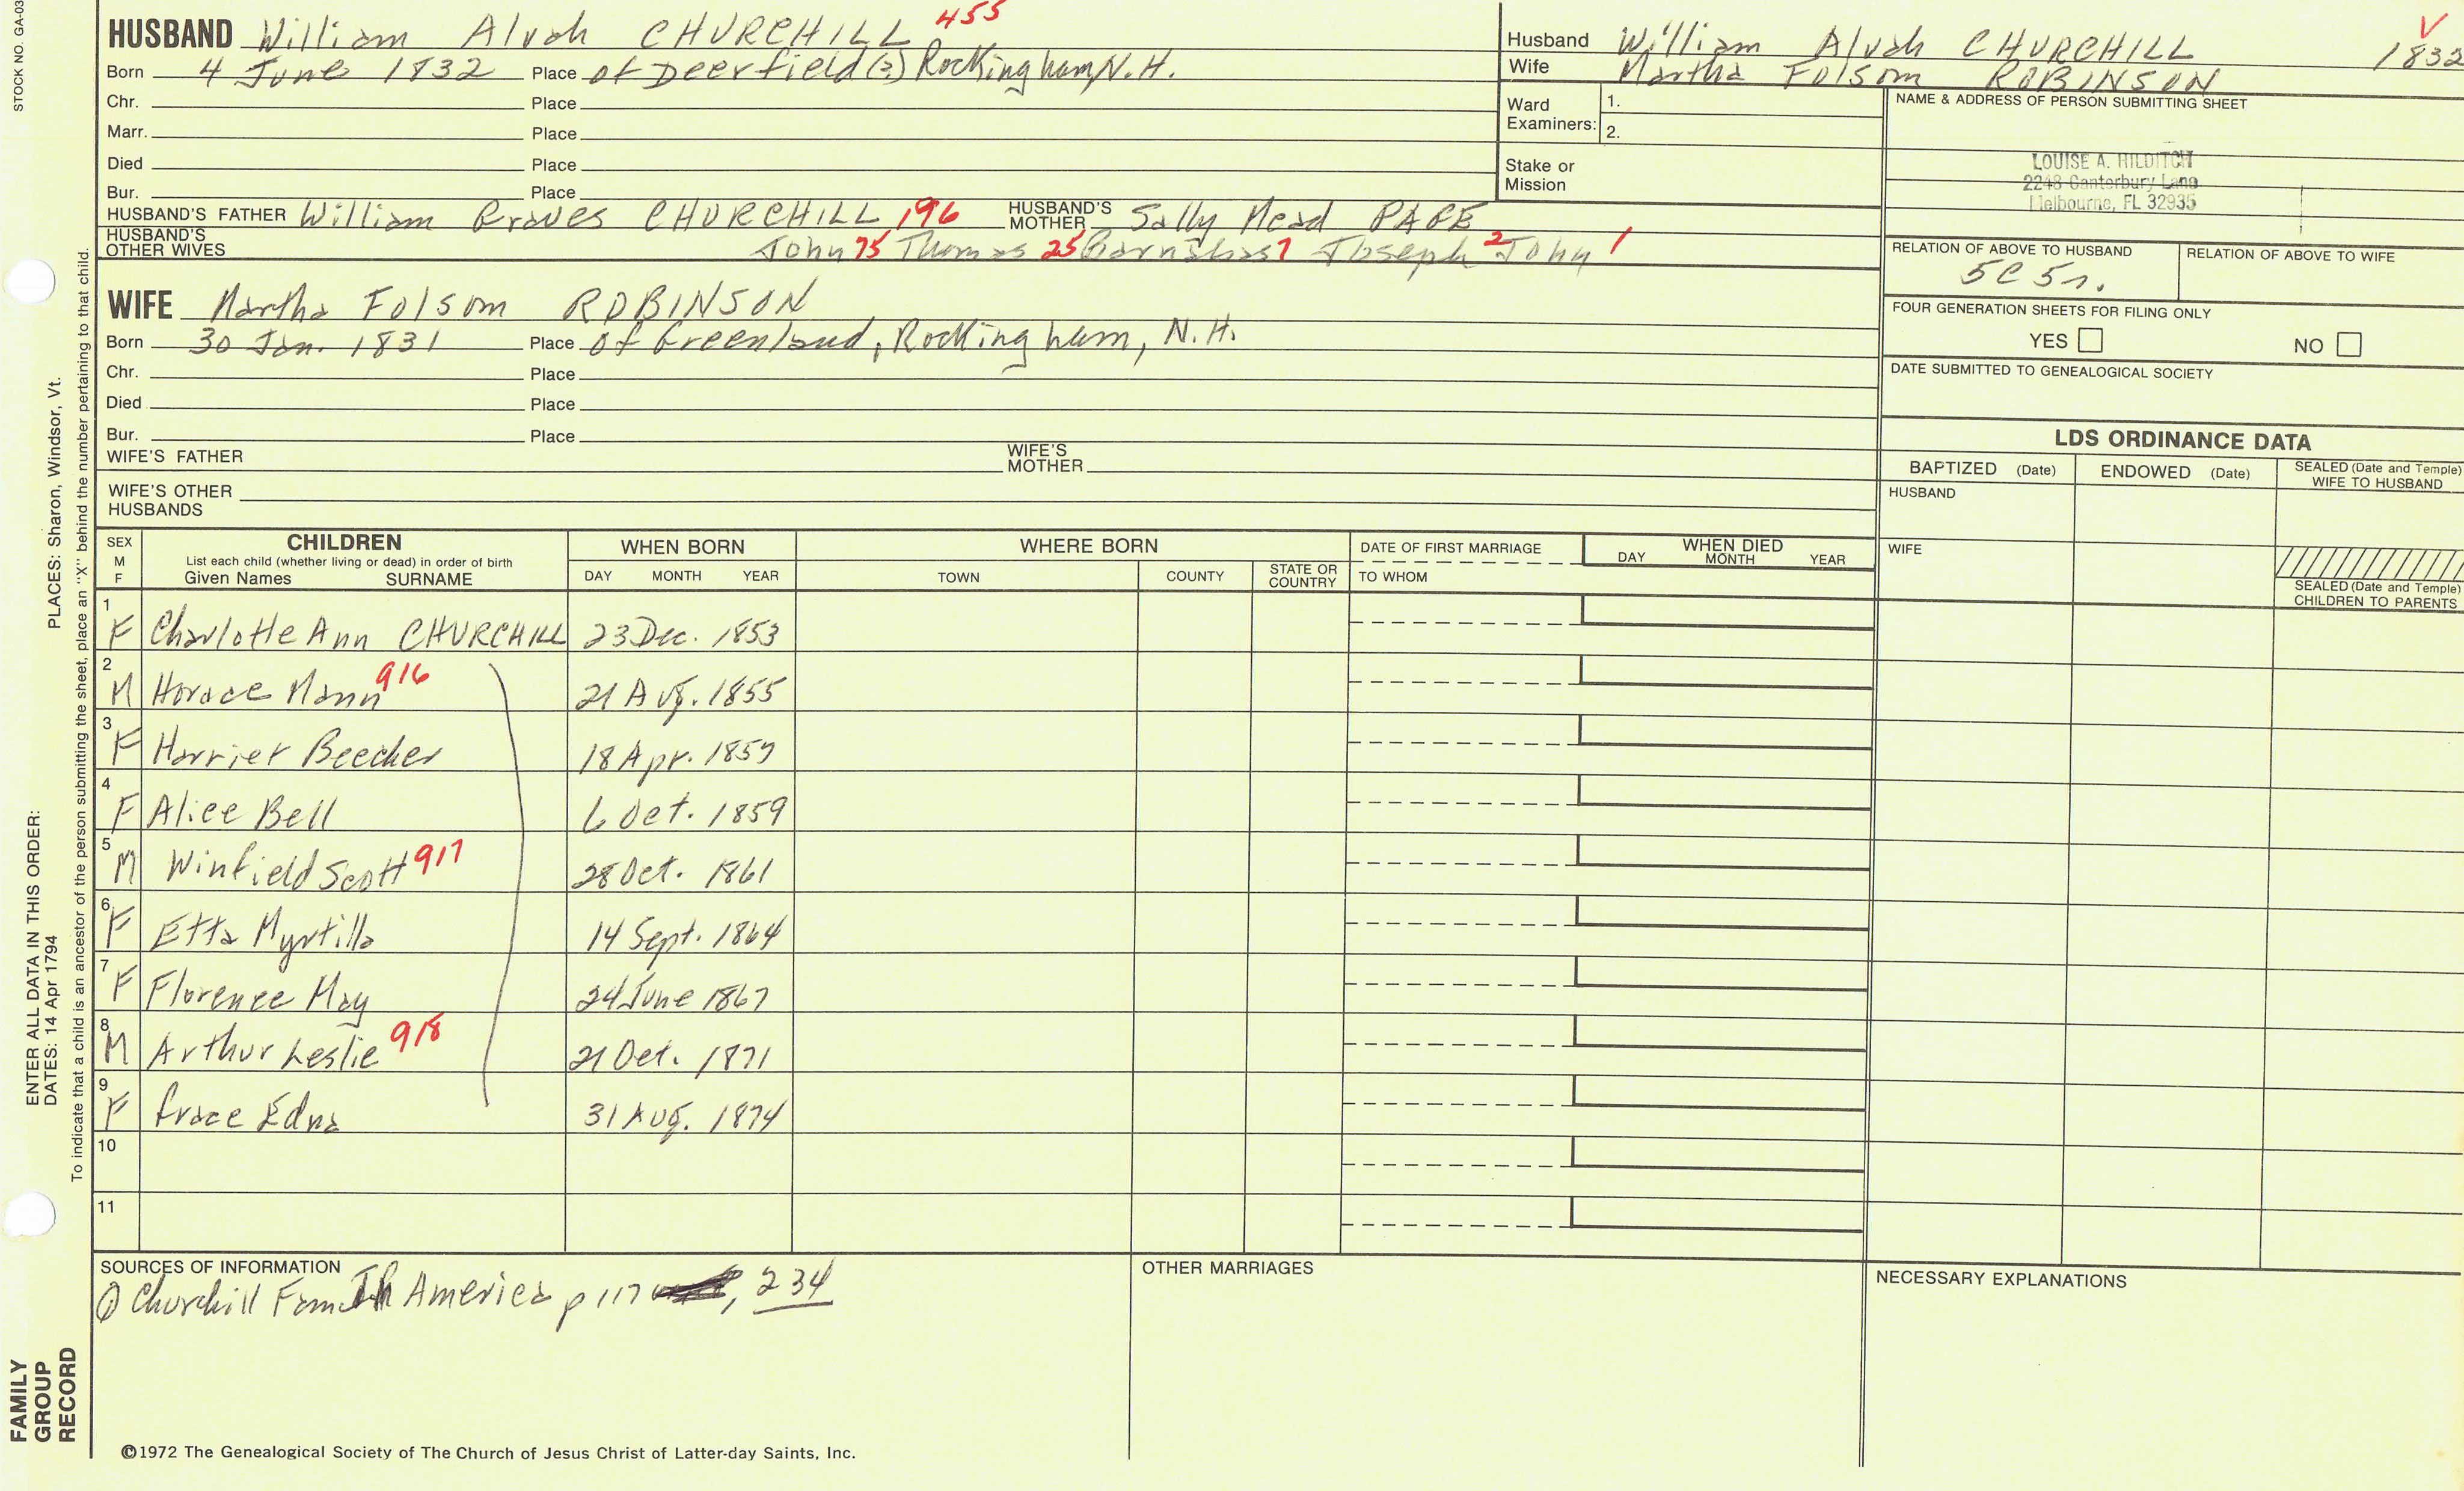 STOCK NO. GA-03
HUSBAND William Alvah CHURCHILL 455
Born 4 June 1832 Place of Deerfield(?) Rockingham, N.H.
Chr. Place
Marr. Place
Died Place
Bur. Place
HUSBAND'S FATHER William Graves CHURCHILL 196 HUSBAND'S MOTHER Sally Mead PAGE
HUSBAND'S OTHER WIVES John 75 Thomas 25 Barnabas 7 Joseph 2 John 1
WIFE Martha Folsom ROBINSON
Born 30 Jan. 1831 Place of Greenland, Rockingham, N.H.
Chr. Place
Died Place
Bur. Place
WIFE'S FATHER WIFE'S MOTHER
WIFE'S OTHER HUSBANDS
Husband William Alvah CHURCHILL 1832
Wife Martha Folsom ROBINSON
Ward Examiners: 1.
2.
Stake or Mission
NAME & ADDRESS OF PERSON SUBMITTING SHEET
LOUISE A. HILDITCH
2248 Canterbury Lane
Melbourne, FL 32935
RELATION OF ABOVE TO HUSBAND RELATION OF ABOVE TO WIFE
5C5r.
FOUR GENERATION SHEETS FOR FILING ONLY
YES NO
DATE SUBMITTED TO GENEALOGICAL SOCIETY
LDS ORDINANCE DATA
BAPTIZED (Date) ENDOWED (Date) SEALED (Date and Temple) WIFE TO HUSBAND
HUSBAND
WIFE
SEALED (Date and Temple) CHILDREN TO PARENTS
SEX M F CHILDREN List each child (whether living or dead) in order of birth Given Names SURNAME WHEN BORN DAY MONTH YEAR WHERE BORN TOWN COUNTY STATE OR COUNTRY DATE OF FIRST MARRIAGE TO WHOM WHEN DIED DAY MONTH YEAR
1 F Charlotte Ann CHURCHILL 23 Dec. 1853
2 M Horace Mann 916 21 Aug. 1855
3 F Harriet Beecher 18 Apr. 1857
4 F Alice Bell 6 Oct. 1859
5 M Winfield Scott 917 28 Oct. 1861
6 F Etta Myrtilla 14 Sept. 1864
7 F Florence May 24 June 1867
8 M Arthur Leslie 918 21 Oct. 1871
9 F Grace Edna 31 Aug. 1874
10
11
SOURCES OF INFORMATION
① Churchill Fam In America p 117, 234
OTHER MARRIAGES
NECESSARY EXPLANATIONS
©1972 The Genealogical Society of The Church of Jesus Christ of Latter-day Saints, Inc.
FAMILY GROUP RECORD
ENTER ALL DATA IN THIS ORDER:
DATES: 14 Apr 1794 PLACES: Sharon, Windsor, Vt.
To indicate that a child is an ancestor of the person submitting the sheet, place an "X" behind the number pertaining to that child.